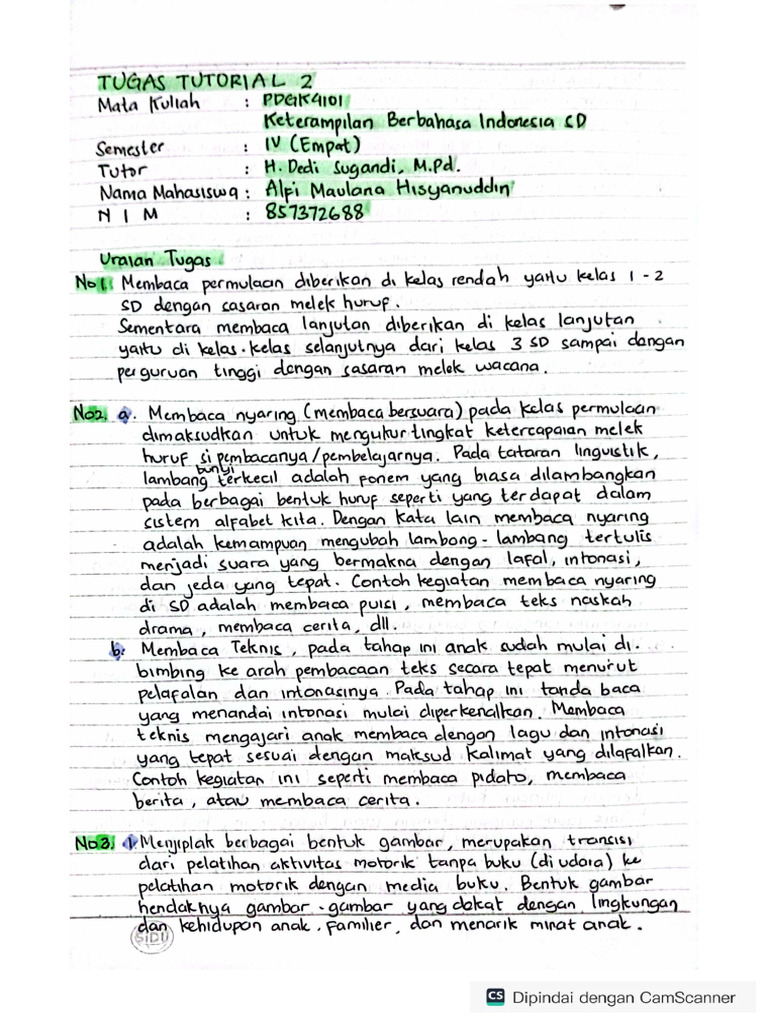 TUGAS TUTORIAL 2
Mata Kuliah : PDGK4101
Keterampilan Berbahasa Indonesia SD
Semester : IV (Empat)
Tutor : H. Dedi Sugandi, M.Pd.
Nama Mahasiswa : Alfi Maulana Hisyanuddin
N I M : 857372688
Uraian Tugas
No 1. Membaca permulaan diberikan di kelas rendah yaitu kelas 1 - 2
SD dengan sasaran melek huruf.
Sementara membaca lanjutan diberikan di kelas lanjutan
yaitu di kelas-kelas selanjutnya dari kelas 3 SD sampai dengan
perguruan tinggi dengan sasaran melek wacana.
No2. a. Membaca nyaring (membaca bersuara) pada kelas permulaan
dimaksudkan untuk mengukur tingkat ketercapaian melek
huruf si pembacanya/pembelajarnya. Pada tataran linguistik,
lambang bunyi terkecil adalah fonem yang biasa dilambangkan
pada berbagai bentuk huruf seperti yang terdapat dalam
sistem alfabet kita. Dengan kata lain membaca nyaring
adalah kemampuan mengubah lambang-lambang tertulis
menjadi suara yang bermakna dengan lafal, intonasi,
dan jeda yang tepat. Contoh kegiatan membaca nyaring
di SD adalah membaca puisi, membaca teks naskah
drama, membaca cerita, dll.
b. Membaca Teknis, pada tahap ini anak sudah mulai di-
bimbing ke arah pembacaan teks secara tepat menurut
pelafalan dan intonasinya. Pada tahap ini tanda baca
yang menandai intonasi mulai diperkenalkan. Membaca
teknis mengajari anak membaca dengan lagu dan intonasi
yang tepat sesuai dengan maksud kalimat yang dilafalkan.
Contoh kegiatan ini seperti membaca pidato, membaca
berita, atau membaca cerita.
No3. 1. Menjiplak berbagai bentuk gambar, merupakan transisi
dari pelatihan aktivitas motorik tanpa buku (di udara) ke
pelatihan motorik dengan media buku. Bentuk gambar
hendaknya gambar-gambar yang dekat dengan lingkungan
dan kehidupan anak, familier, dan menarik minat anak.
SIDU
CS Dipindai dengan CamScanner